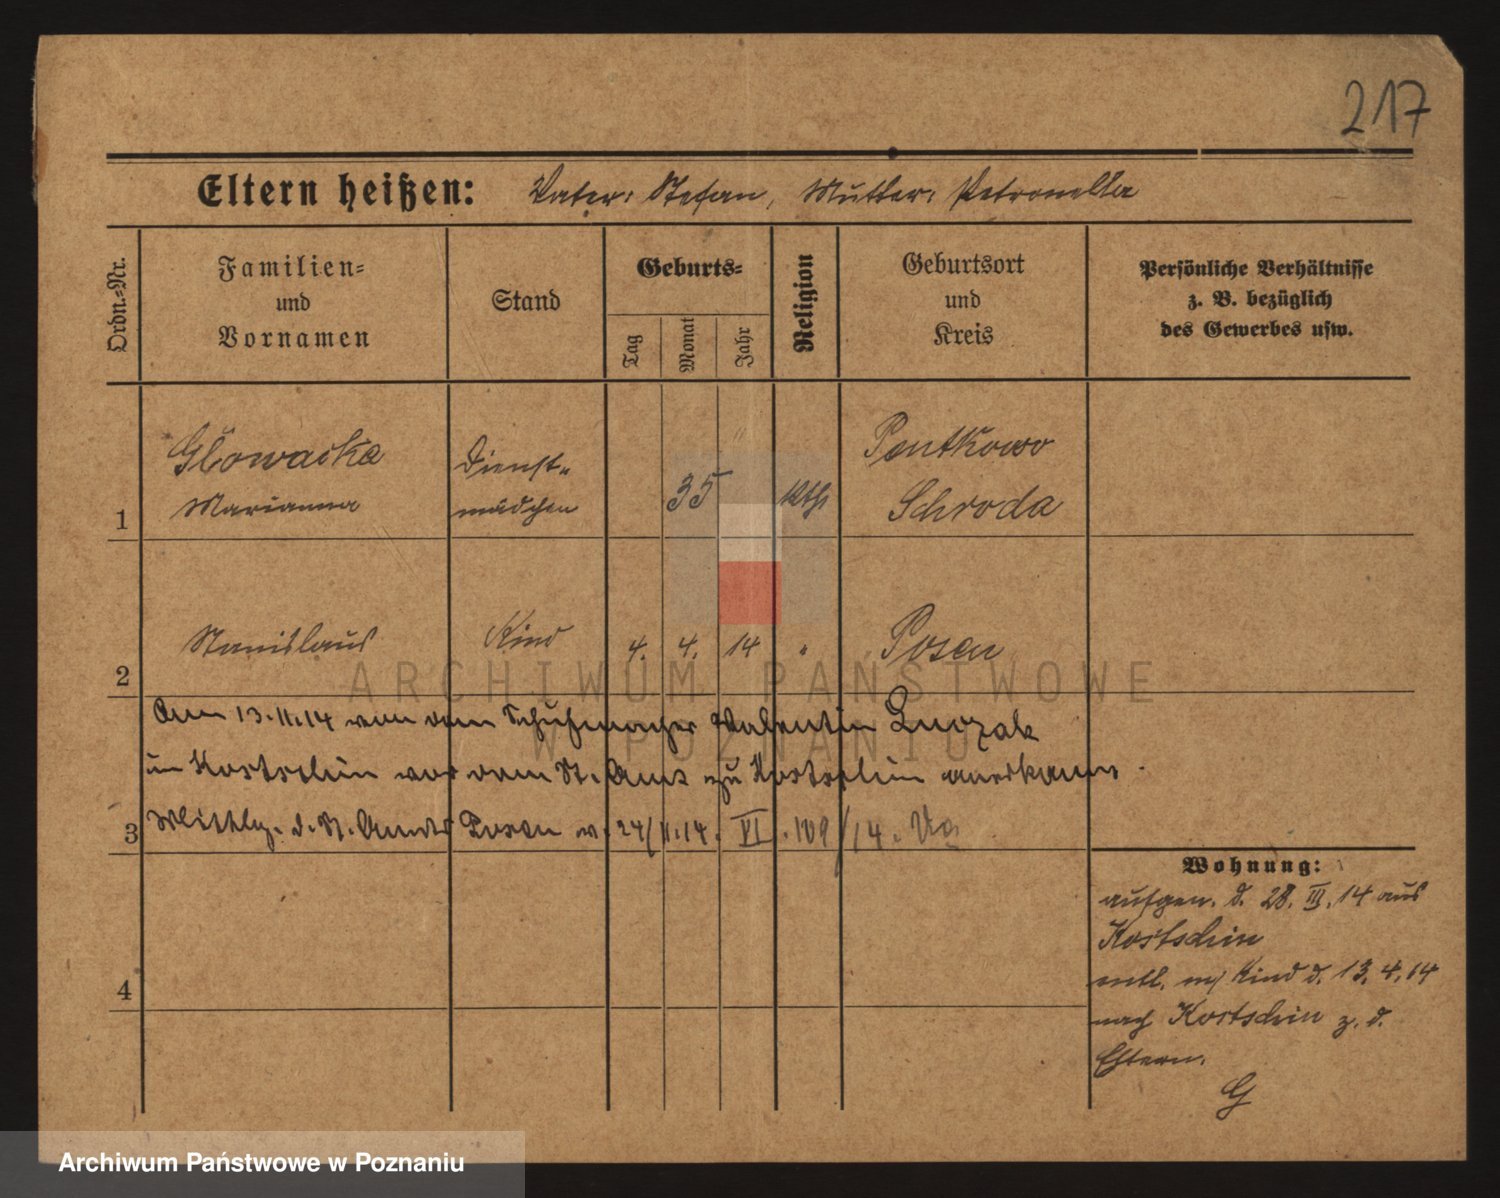 217
Eltern heißen: Vater: Stefan, Mutter: Petronella
Ordn.-Nr.
Familien-
und
Vornamen
Stand
Geburts-
Tag
Monat
Jahr
Religion
Geburtsort
und
Kreis
Persönliche Verhältnisse
z. B. bezüglich
des Gewerbes usw.
1
Głowacka
Marianna
Dienst-
mädchen
35
kth
Pentkowo
Schroda
2
Stanislaus
Kind
4. 4. 14
"
Posen
Am 13.11.14 von dem Schuhmacher Valentin
in Kostschin vor dem St. Amt zu Kostschin anerkannt.
3
Mitthlg. d. St. Amts Posen v. 24/11.14. VI. 109/14.
Wohnung:
aufgen. d. 28. III. 14 aus
Kostschin
entl. m/ Kind d. 13. 4. 14
nach Kostschin z. d.
Eltern.
G
4
ARCHIWUM PAŃSTWOWE
W POZNANIU
Archiwum Państwowe w Poznaniu